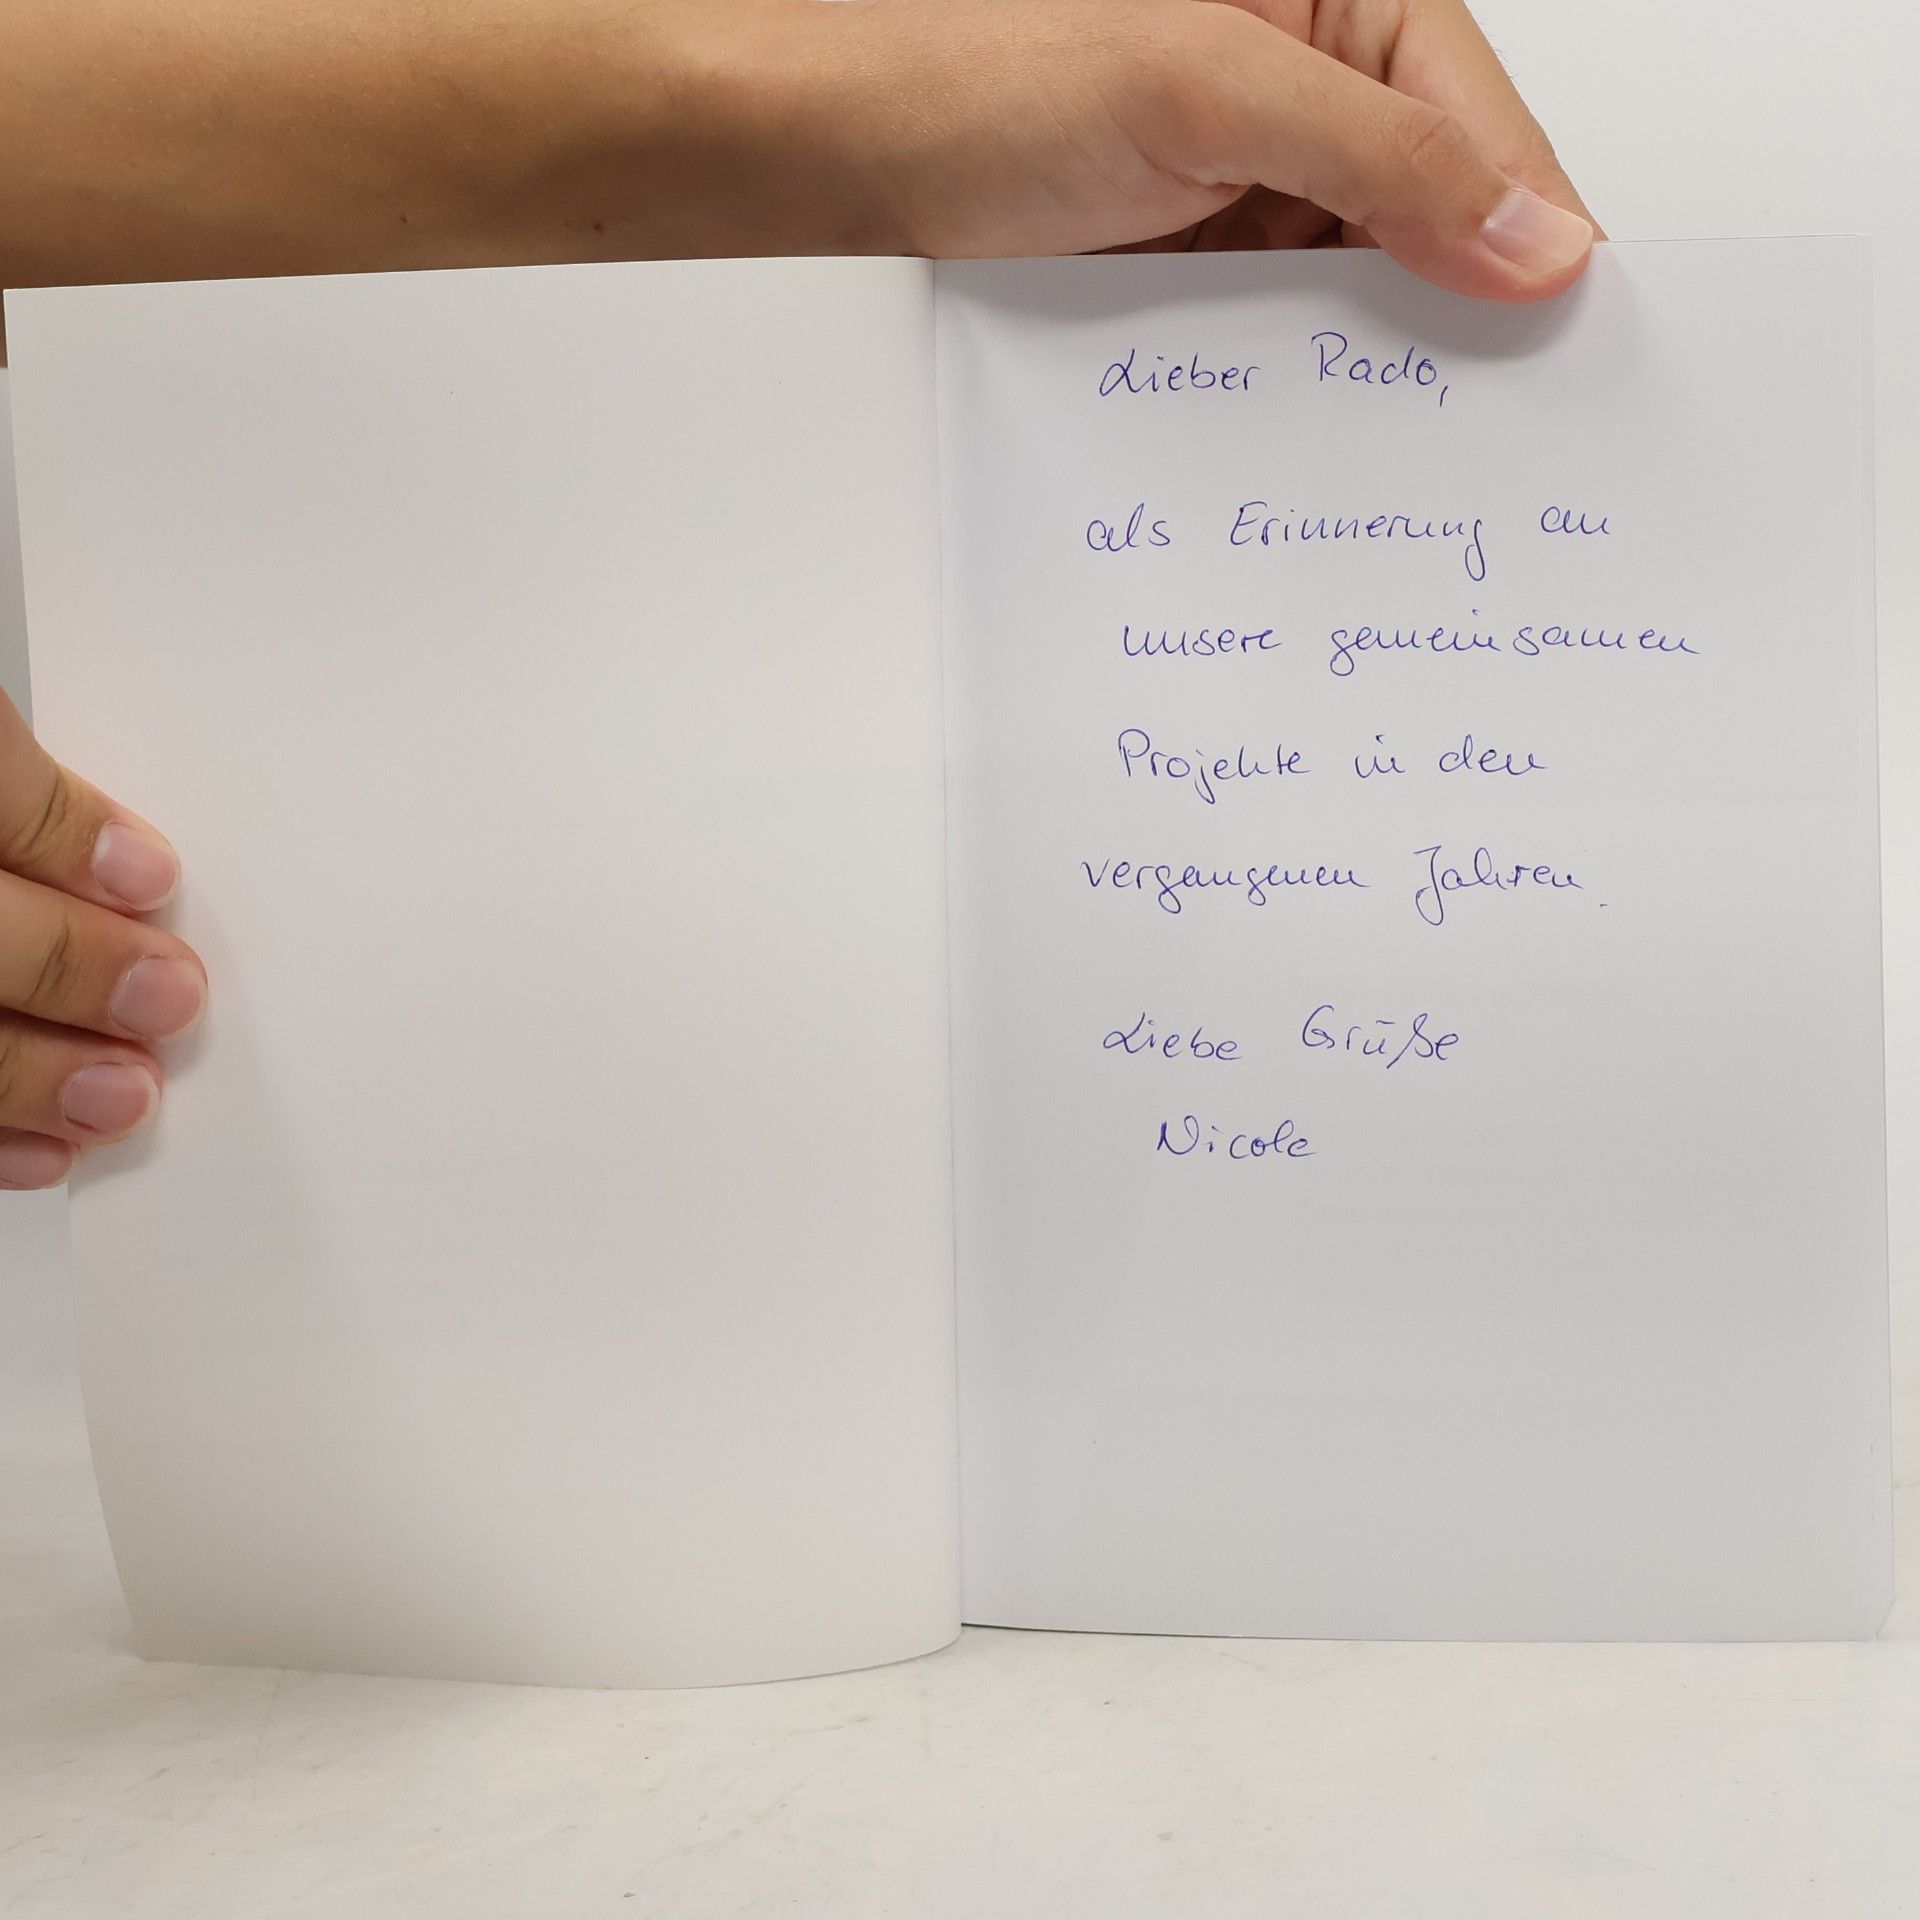 Lieber Rado,
als Erinnerung an
unsere gemeinsamen
Projekte in den
vergangenen Jahren.
Liebe Grüße
Nicole